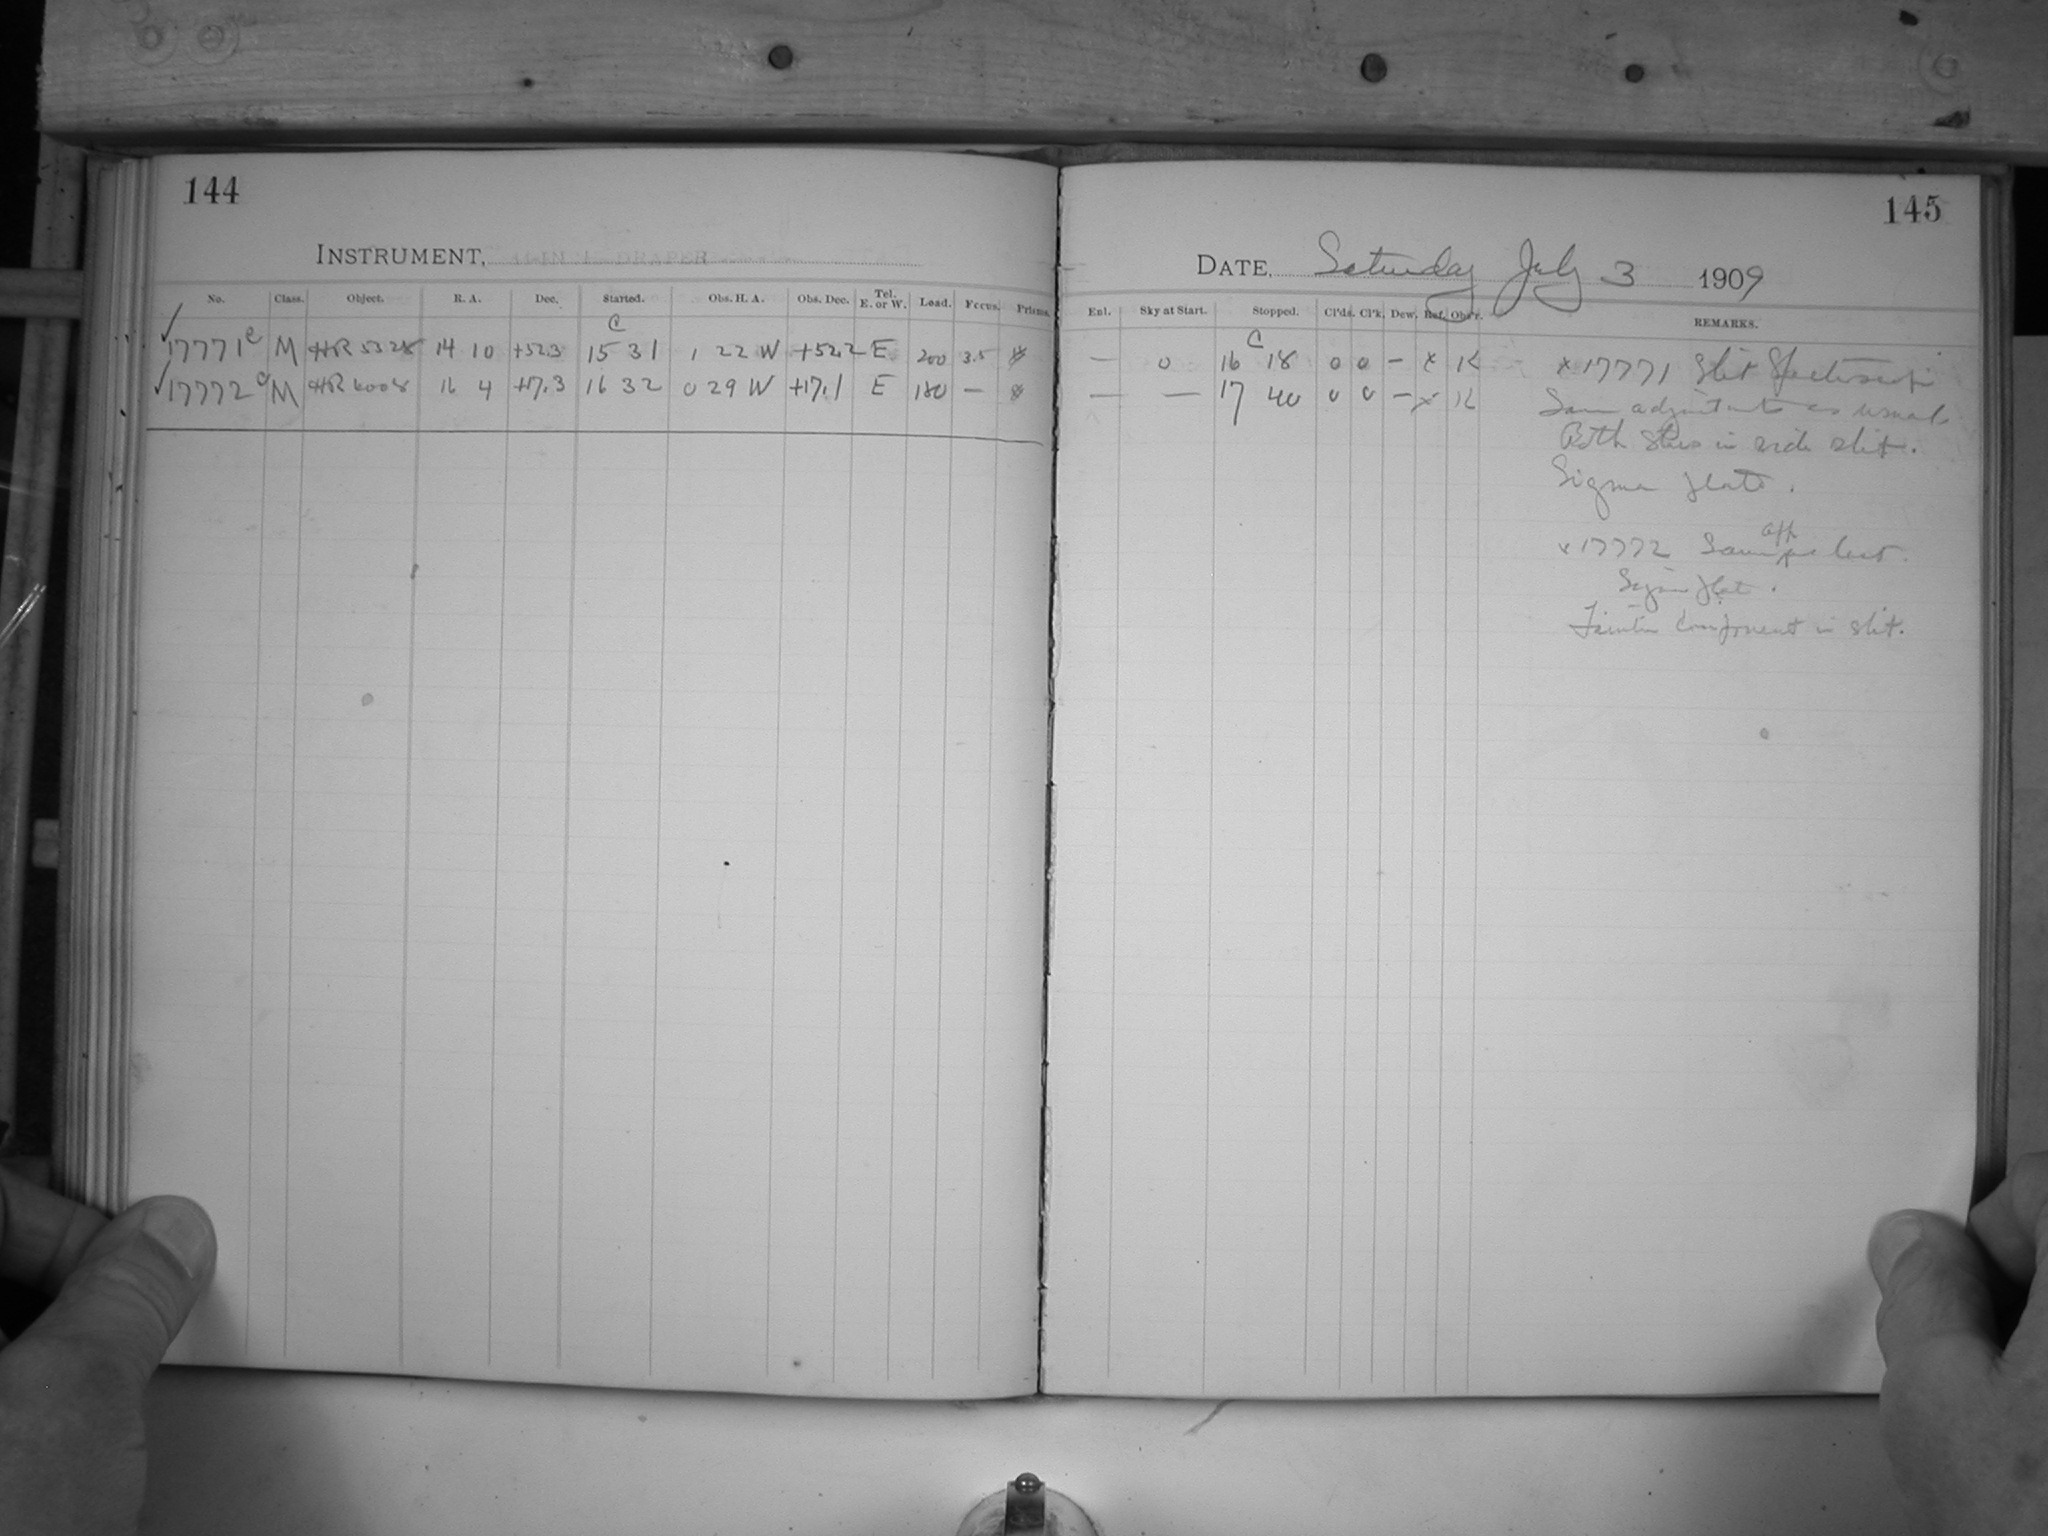 144
INSTRUMENT, 11-IN DRAPER
No. Class. Object. R. A. Dec. Started. Obs. H. A. Obs. Dec. Tel. E. or W. Load. Focus. Prisms.
C
17771 e M HR 5328 14 10 +52.3 15 31 1 22 W +52.2 E 200 3.5
17772 M HR 6008 16 4 +17.3 16 32 0 29 W +17.1 E 180 —
145
DATE, Saturday July 3 1909
Enl. Sky at Start. Stopped. Cl'ds. Cl'k. Dew. Ref. Obs'r. REMARKS.
C
— 0 16 18 0 0 — x K x 17771 Slit Spectroscope
— — 17 40 0 0 — x K Same adjustments as usual
Both stars in slit.
Sigma plate.
x 17772 Same as last.
Sigma plate.
Fainter component in slit.